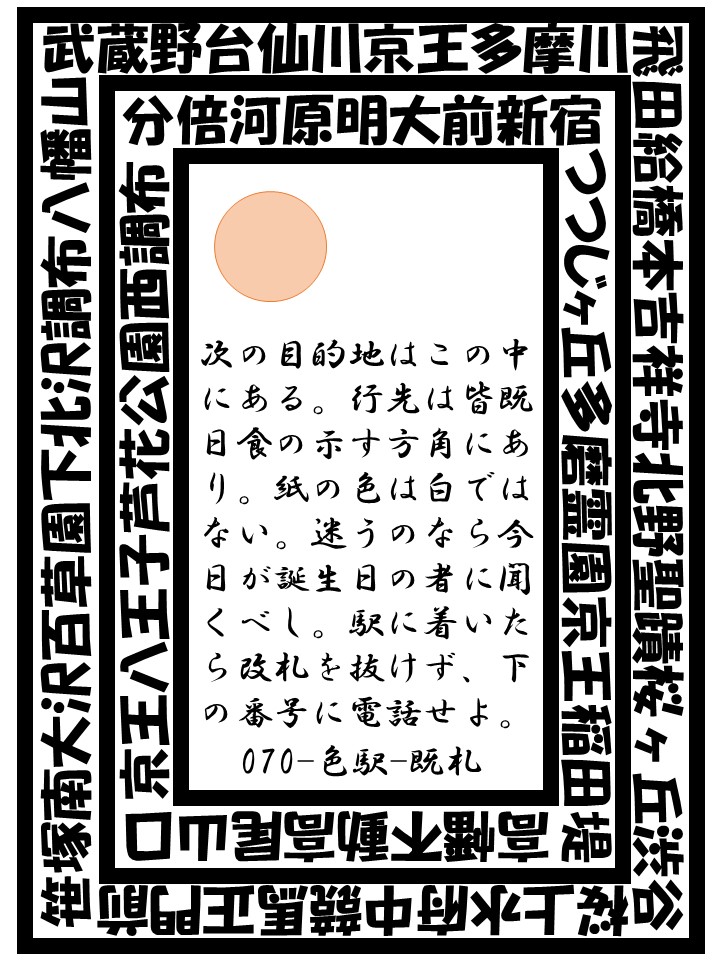 武蔵野台仙川京王多摩川
飛田給橋本吉祥寺北野聖蹟桜ヶ丘渋谷
桜上水府中競馬正門前
笹塚南大沢百草園下北沢調布八幡山
分倍河原明大前新宿
つつじヶ丘多磨霊園京王稲田堤
高幡不動高尾山口
京王八王子芦花公園西調布
次の目的地はこの中
にある。行先は皆既
日食の示す方角にあ
り。紙の色は白では
ない。迷うのなら今
日が誕生日の者に聞
くべし。駅に着いた
ら改札を抜けず、下
の番号に電話せよ。
070-色駅-既札